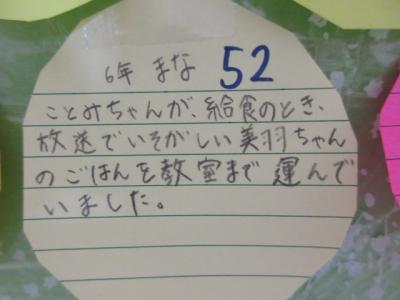 6年 まな 52
ことみちゃんが、給食のとき、
放送でいそがしい美羽ちゃん
のごはんを教室まで運んで
いました。